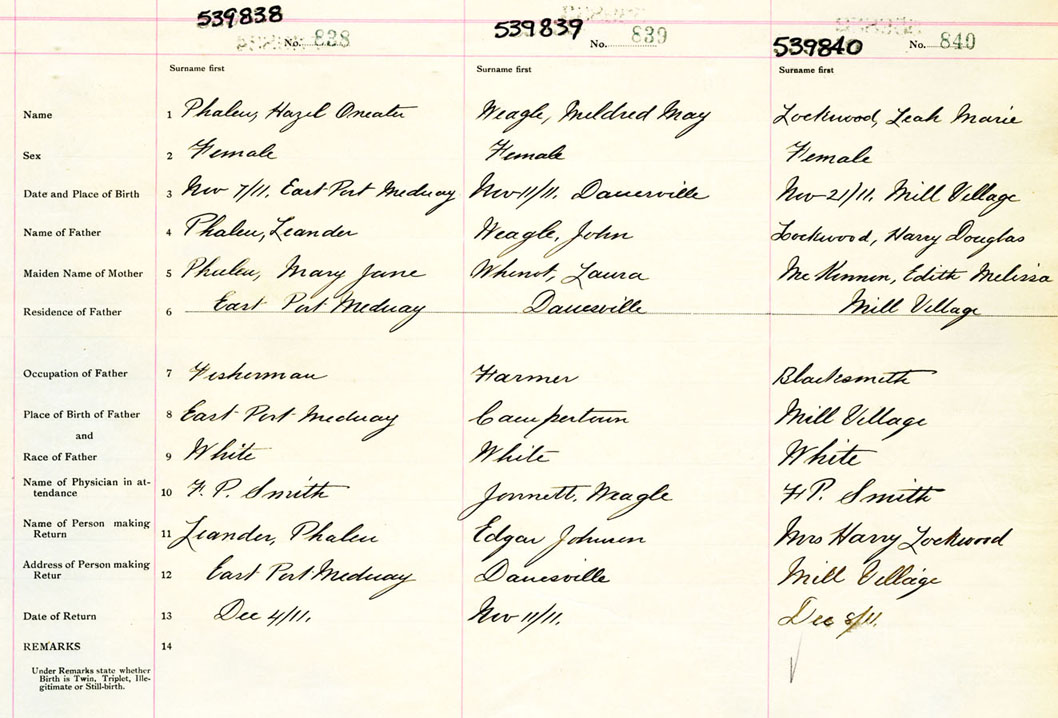 539838 539839 539840
No. 838 No. 839 No. 840
Surname first Surname first Surname first
Name 1 Phalen, Hazel Weagle, Mildred May Lockwood, Leah Marie
Sex 2 Female Female Female
Date and Place of Birth 3 Nov 7/11. East Port Medway Nov 11/11. Danesville Nov 21/11. Mill Village
Name of Father 4 Phalen, Leander Weagle, John Lockwood, Harry Douglas
Maiden Name of Mother 5 Phalen, Mary Jane Laura Edith Melissa
Residence of Father 6 East Port Medway Danesville Mill Village
Occupation of Father 7 Fisherman Farmer Blacksmith
Place of Birth of Father 8 East Port Medway Campertown Mill Village
and
Race of Father 9 White White White
Name of Physician in at-
tendance 10 F. P. Smith Weagle F P. Smith
Name of Person making
Return 11 Leander, Phalen Edgar Johnson Mrs Harry Lockwood
Address of Person making
Retur 12 East Port Medway Danesville Mill Village
Date of Return 13 Dec 4/11. Nov 11/11. Dec 8/11.
REMARKS 14
Under Remarks state whether
Birth is Twin, Triplet, Ille-
gitimate or Still-birth.